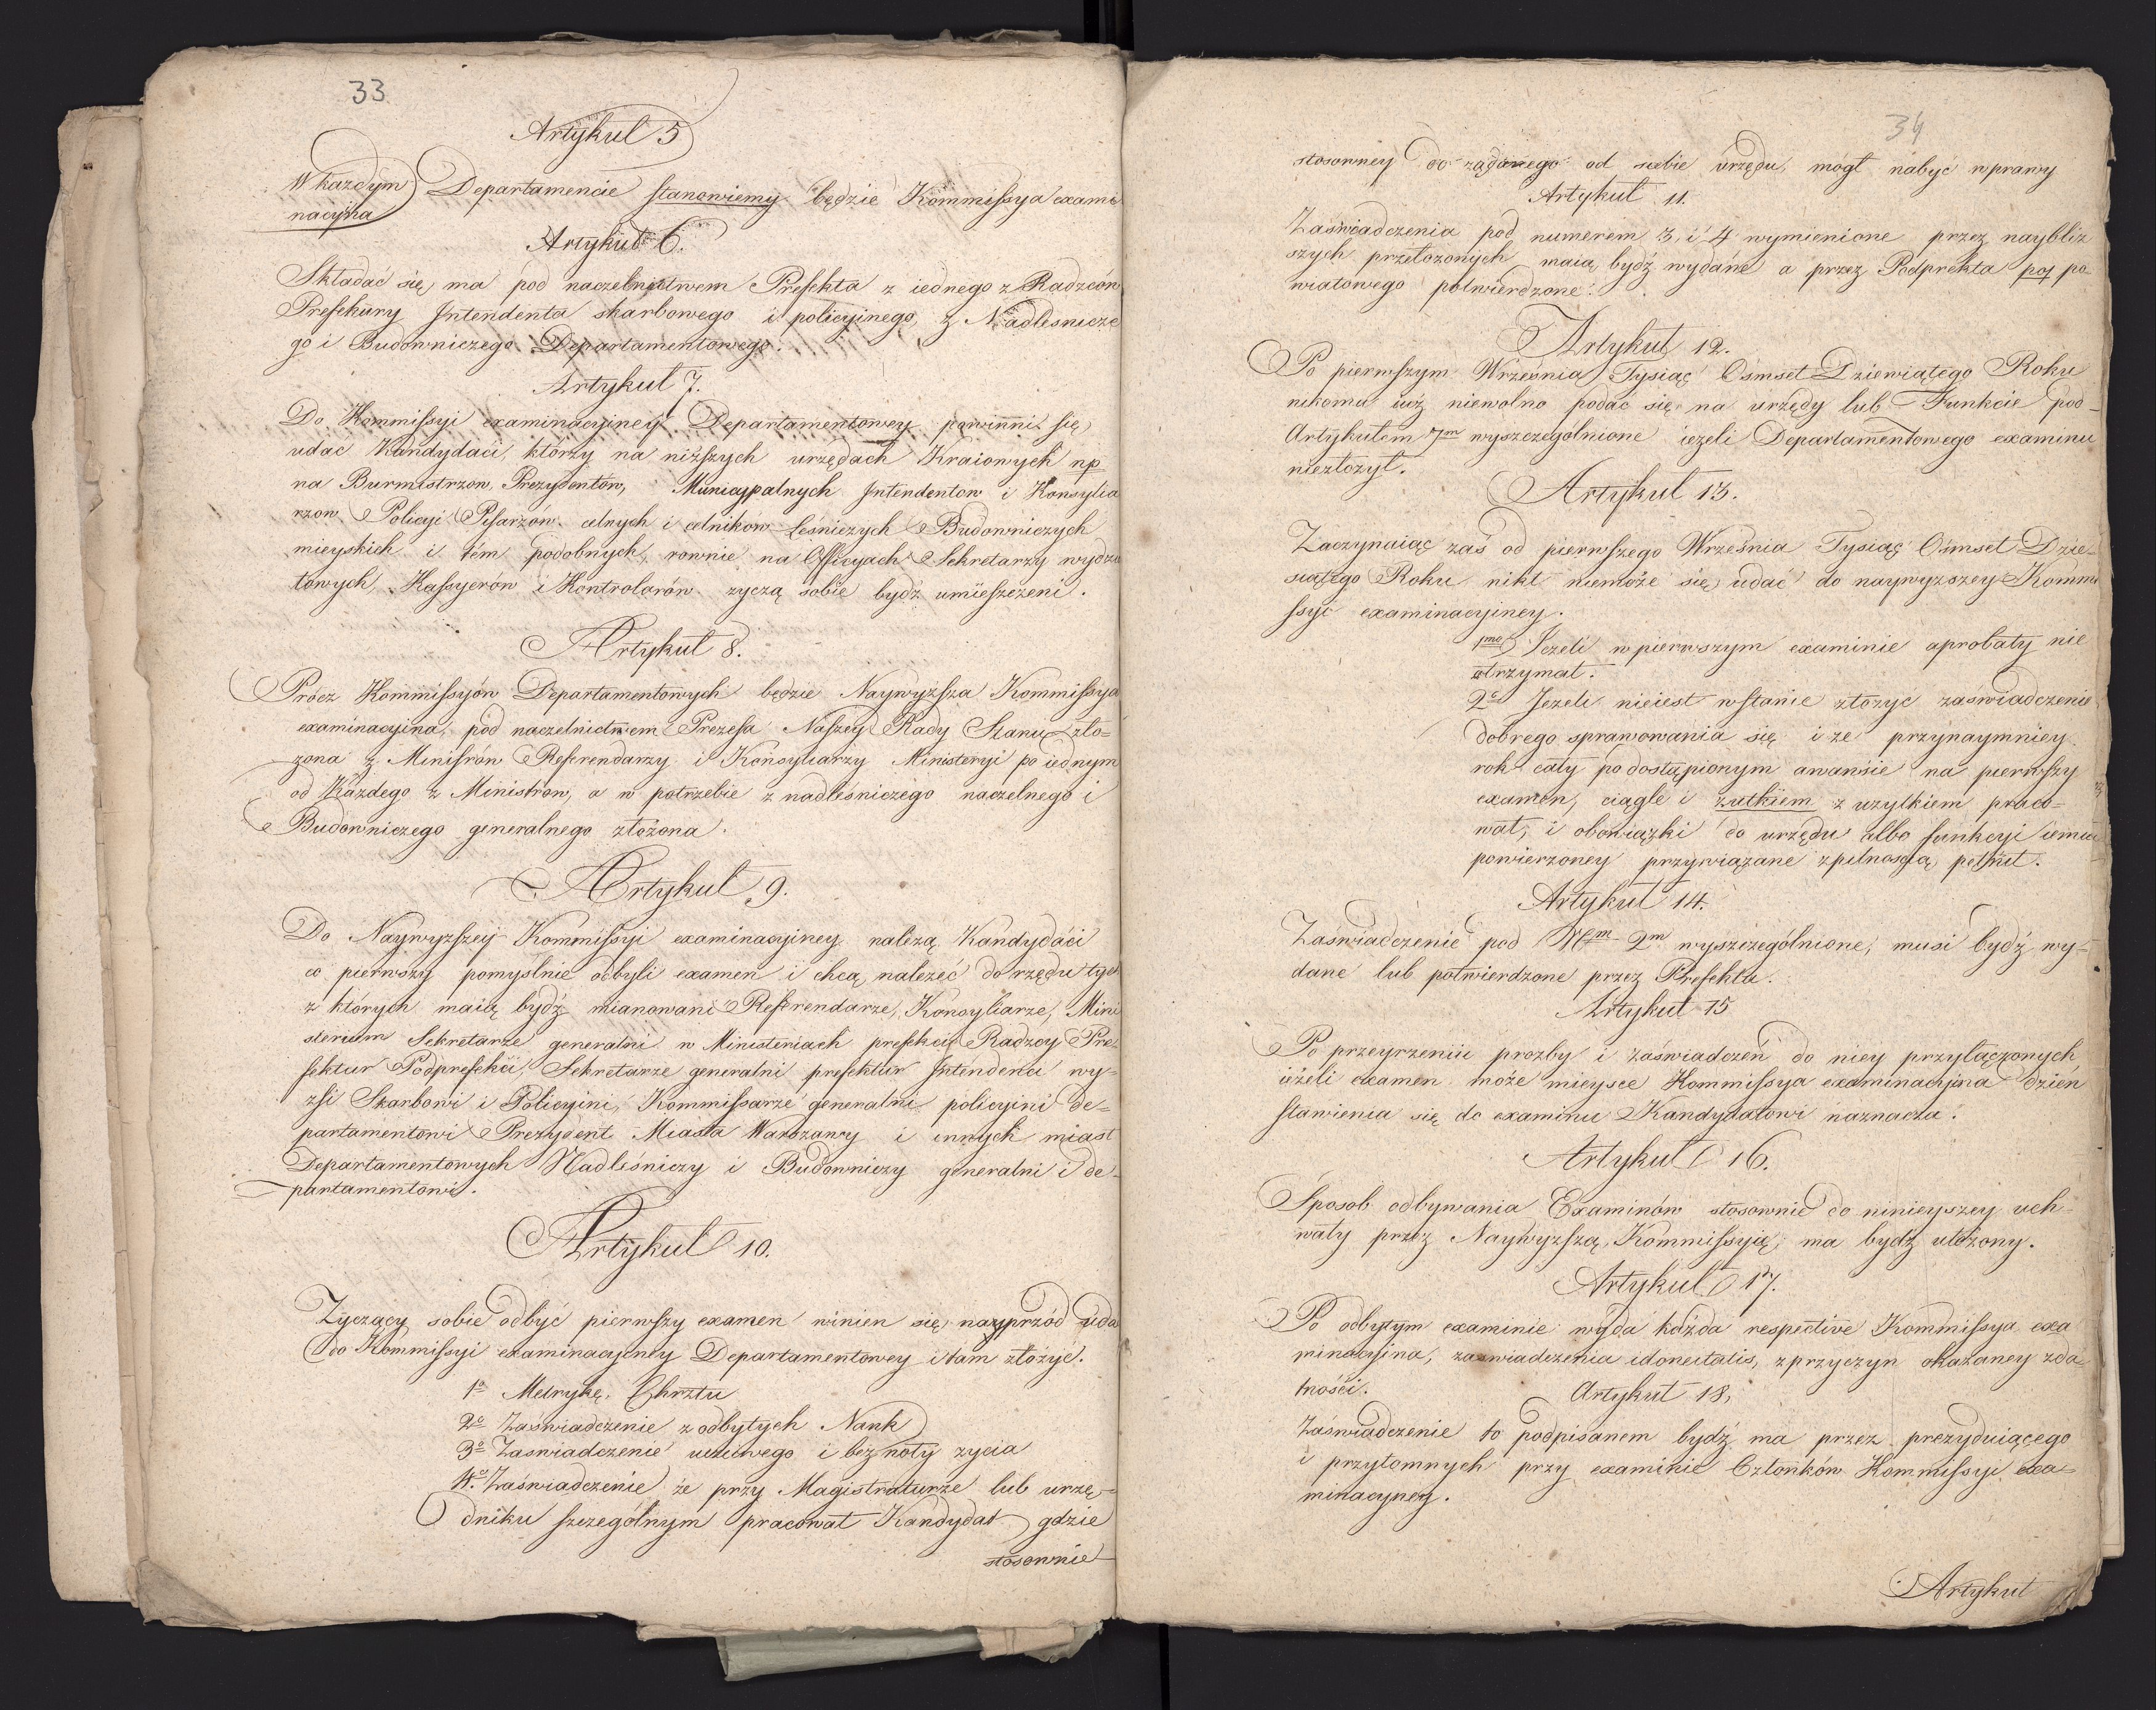 33
Artykul 5
W kazdym Departamencie stanowiemy będzie Kommissya exami
nacyina
Artykul 6.
Składać się ma pod naczelnictwem Prefekta z iednego z Radzców
Prefekury Intendenta skarbowego i policyinego, z Nadlesnicze
go i Budowniczego Departamentowego.
Artykuł 7.
Do Kommissyi examinacyiney Departamentowey powinni się
udać Kandydaci, ktorzy na niższych urzędach Kraiowych np
na Burmistrzow, Prezydentów, Municypalnych Intendentow i Konsylia
rzow Policyi Pisarzów celnych i celników Leśniczych Budowniczych
mieyskich i tém podobnych, rownie na Officyach Sekretarzy wydzia
łowych, Kassyerów i Kontrolorów zyczą sobie bydź umieszczeni.
Artykuł 8.
Procz Kommissyów Departamentowych będzie Naywyższa Kommissya
examinacyina, pod naczelnictwem Prezesa Naszey Rady Stanu zło=
zona z Minisrów Referendarzy i Konsyliarzy Ministeryi po iednym
od Kazdego z Ministrów, a w potrzebie z nadlesniczego naczelnego i
Budowniczego generalnego złożona.
Artykuł 9.
Do Naywyzszey Kommissyi examinacyiney należą Kandydaci
co pierwszy pomyslnie odbyli examen i chcą należeć do rzędu tych
z których maią bydź mianowani Referendarze, Konsyliarze, Mini
sterium Sekretarze generalni w Ministeriach prefekci Radzcy Pre=
fektur Podprefekci, Sekretarze generalni prefektur Intendenci wy=
zsi Skarbowi i Policyini, Kommissarze generalni policyini de=
partamentowi Prezydent Miasta Warszawy i innych miast
Departamentowych Nadleśniczy i Budowniczy generalni i de-
partamentowi.
Artykuł 10.
Życzący sobie odbyć pierwszy examen winien się nayprzód uda
do Kommissyi examinacyiney Departamentowey i tam złożyć.
1º Metrykę, Chrztu
2º Zaświadczenie z odbytych Nauk
3º Zaswiadczenie uczciwego i bez noty zycia
4º. Zaświadczenie że przy Magistraturze lub urzę=
dniku szczególnym pracował Kandydat gdzie
stosownie
34
stosowney do żądanego od siebie urzędu, mogł nabyć wprawy
Artykuł 11.
Zaświadczenia pod numerem 3, i 4 wymienione przez naybliz
szych przełozonych maią bydź wydane a przez Podprekta poj po=
wiatowego potwierdzone.
Artykuł 12.
Po pierwszym Września Tysiąc Ośmset Dziewiątego Roku
nikomu iuż niewolno podać się na urzędy lub Funkcie pod-
Artykułem 7m wyszczegolnione iezeli Departamentowego examinu
niezłożył.
Artykuł 13.
Zaczynaiąc zaś od pierwszego Września Tysiąc Ośmset Dzie-
siątego Roku nikt niemoże się udać do naywyzszey Kommi
ssyi examinacyiney.
1mo Iezeli w pierwszym examinie aprobaty nie
otrzymał.
2o Jezeli nieiest wstanie złożyc zaświadczenie
dobrego sprawowania się i ze przynaymniey
rok cały po dostąpionym awansie na pierwszy
examen, ciągle i zutkiem z uzytkiem praco=
wał, i obowiązki do urzędu albo funkcyi iemu
powierzoney przywiązane z pilnością pełnił.
Artykuł 14.
Zaświadczenie pod Nrm 2m wyszczególnione, musi bydź wy=
dane lub potwierdzone przez Prefekta.
Artykuł 15
Po przeyrzeniu prozby i zaświadczeń do niey przyłączonych
ieżeli examen może mieysce Kommissya examinacyina dzień
stawienia się do examinu Kandydatowi naznacza.
Artykuł 16.
Sposob odbywania Examinów stosownie do ninieyszey uch=
wały przez Naywyzszą Kommissyię, ma bydź ułożony.
Artykuł 17.
Po odbytym examinie wyda każda respective Kommissya exa
minacyina, zaswiadczenia idoneitatis, z przyczyn okazaney zda=
tności.
Artykuł 18,
Zaświadczenie to podpisanem bydź ma przez prezyduiącego
i przytomnych przy examinie Członków Kommissyi exa=
minacyney.
Artykuł